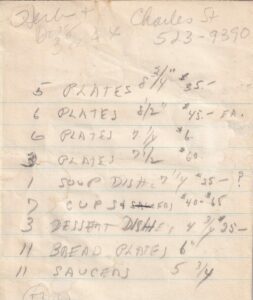 Charles St
523-9390
5 PLATES 8 3/4" $35.-
6 PLATES 8 1/2" $45.- EA.
6 PLATES 7 1/4 $6.
3 PLATES 7 1/2 $60
1 SOUP DISH, 7 1/4 $25- ?
7 CUPS & SAUCERS $40- $65
3 DESSERT DISHES, 4 3/4 $25-
11 BREAD PLATES 6"
11 SAUCERS 5 3/4